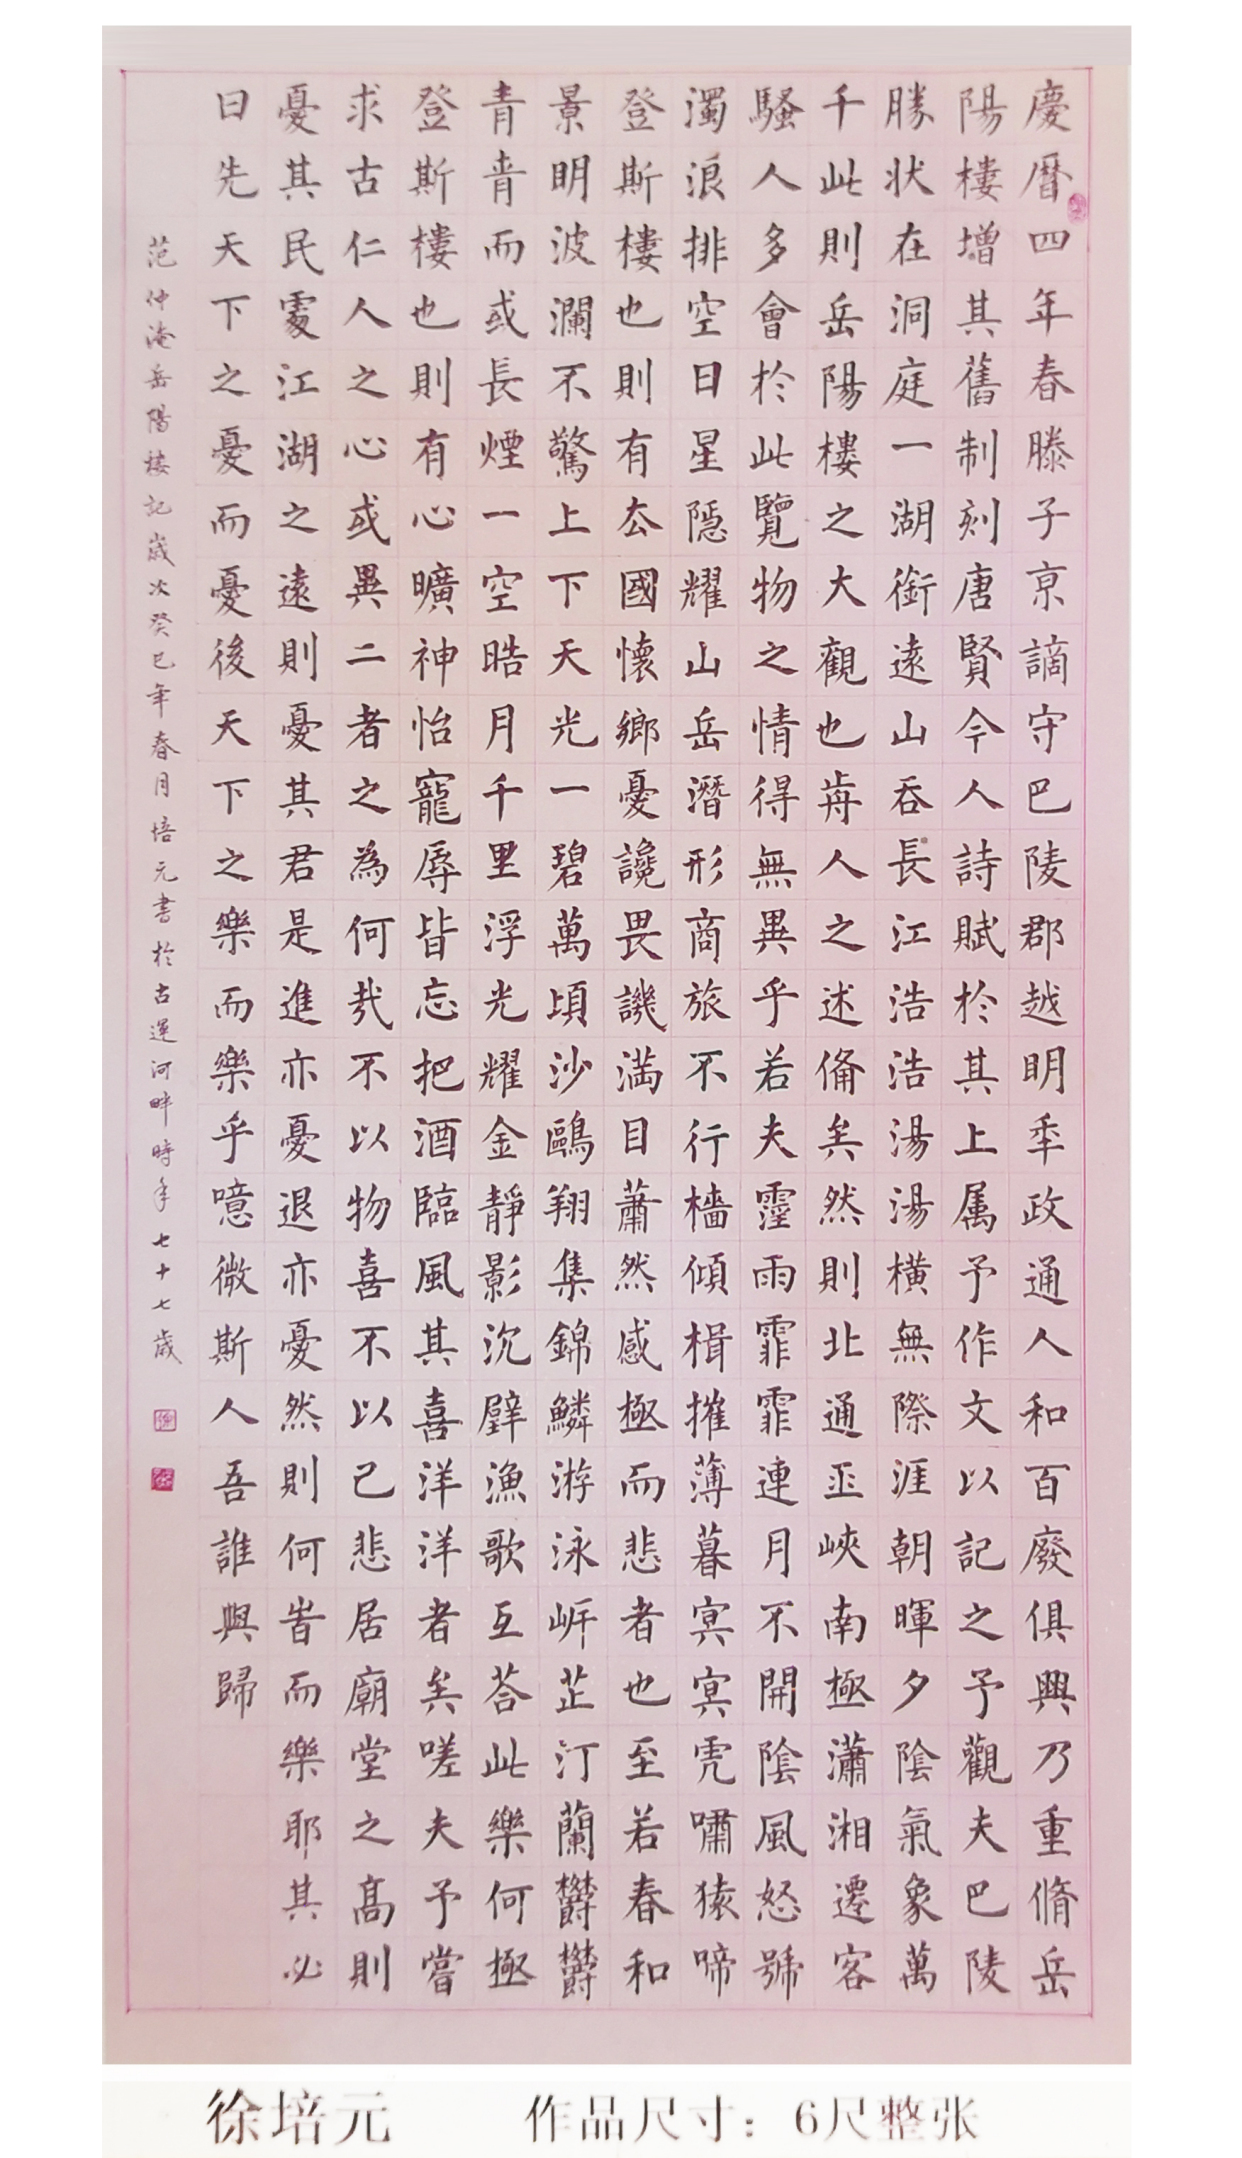 慶厝四年春滕子亰謫守巴陵郡越明秊政通人和百廢俱興乃重脩岳
陽樓增其舊制刻唐賢今人詩賦於其上属予作文以記之予觀夫巴陵
勝状在洞庭一湖銜遠山吞長江浩浩湯湯横無際涯朝暉夕陰氣象萬
千此則岳陽樓之大觀也歬人之述俻矣然則北通巫峽南極瀟湘遷客
騷人多會於此覽物之情得無異乎若夫霪雨霏霏連月不開陰風怒號
濁浪排空日星隱耀山岳潛形商旅不行檣傾楫摧薄暮冥冥虎嘯猿啼
登斯樓也則有厺國懷鄉憂讒畏譏満目蕭然感極而悲者也至若春和
景明波瀾不驚上下天光一碧萬頃沙鷗翔集錦鱗游泳岸芷汀蘭欝欝
青青而或長煙一空皓月千里浮光耀金靜影沉璧漁歌互荅此樂何極
登斯樓也則有心曠神怡寵辱皆忘把酒臨風其喜洋洋者矣嗟夫予嘗
求古仁人之心或異二者之為何㢤不以物喜不以己悲居廟堂之高則
憂其民處江湖之遠則憂其君是進亦憂退亦憂然則何旹而樂耶其必
曰先天下之憂而憂後天下之樂而樂乎噫微斯人吾誰與歸
范仲淹岳陽樓記歲次癸巳年春月培元書於古運河畔時年七十七歲
徐培元 作品尺寸：6尺整张